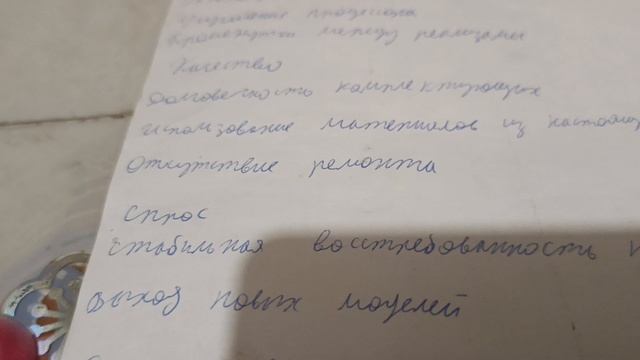 процессора
между релизами
Качество
Долговечность комплектующих
Использование материалов из
Отсутствие ремонта
Спрос
Стабильная востребованность
Выход новых моделей